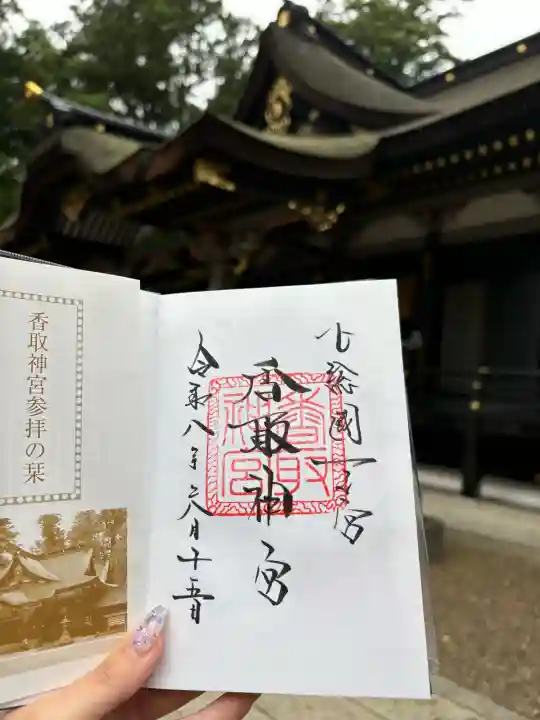 下総國一之宮
香取神宮
令和八年六月十五日
香取神宮
香取神宮参拝の栞